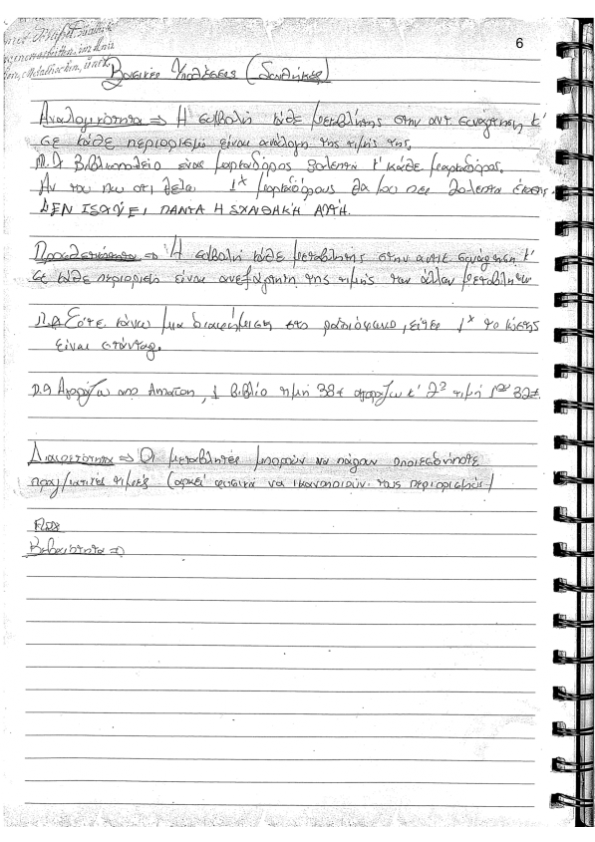 6
Βασικές Υποθέσεις (Συνθήκες)
Αναλογικότητα => Η συμβολή κάθε μεταβλητής στην αντ. συνάρτηση κ'
σε κάθε περιορισμό είναι ανάλογη της τιμής της.
Π.χ Βιβλιοπωλείο ένας μαρκαδόρος κ' κάθε μαρκαδόρος.
Αν του πω ότι θέλω 1* μαρκαδόρους θα μου πει έκπτωση.
ΔΕΝ ΙΣΧΥΕΙ ΠΑΝΤΑ Η ΣΥΝΘΗΚΗ ΑΥΤΗ.
Προσθετικότητα => Η συμβολή κάθε μεταβλητής στην αντικ συνάρτηση κ'
σε κάθε περιορισμό είναι ανεξάρτητη της τιμής των άλλων μεταβλητών
Π.χ Είτε κάνω μια διαφήμιση στο ραδιόφωνο, είτε 1* το κόστος
είναι στάνταρ.
Π.χ Αγοράζω από Amazon, 1 βιβλίο τιμή 38€ αγοράζω κ' 2º τιμή 32€.
Διαιρετότητα => Οι μεταβλητές μπορούν να πάρουν οποιεσδήποτε
πραγματικές τιμές (αρκεί φυσικά να ικανοποιούν τους περιορισμούς)
Βεβαιότητα =>